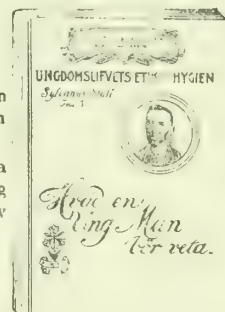 UNGDOMSLIFVETS ETIK HYGIEN
Sylvanus Stall
Hvad en
Ung Man
bör veta.
n
n
a
g
v